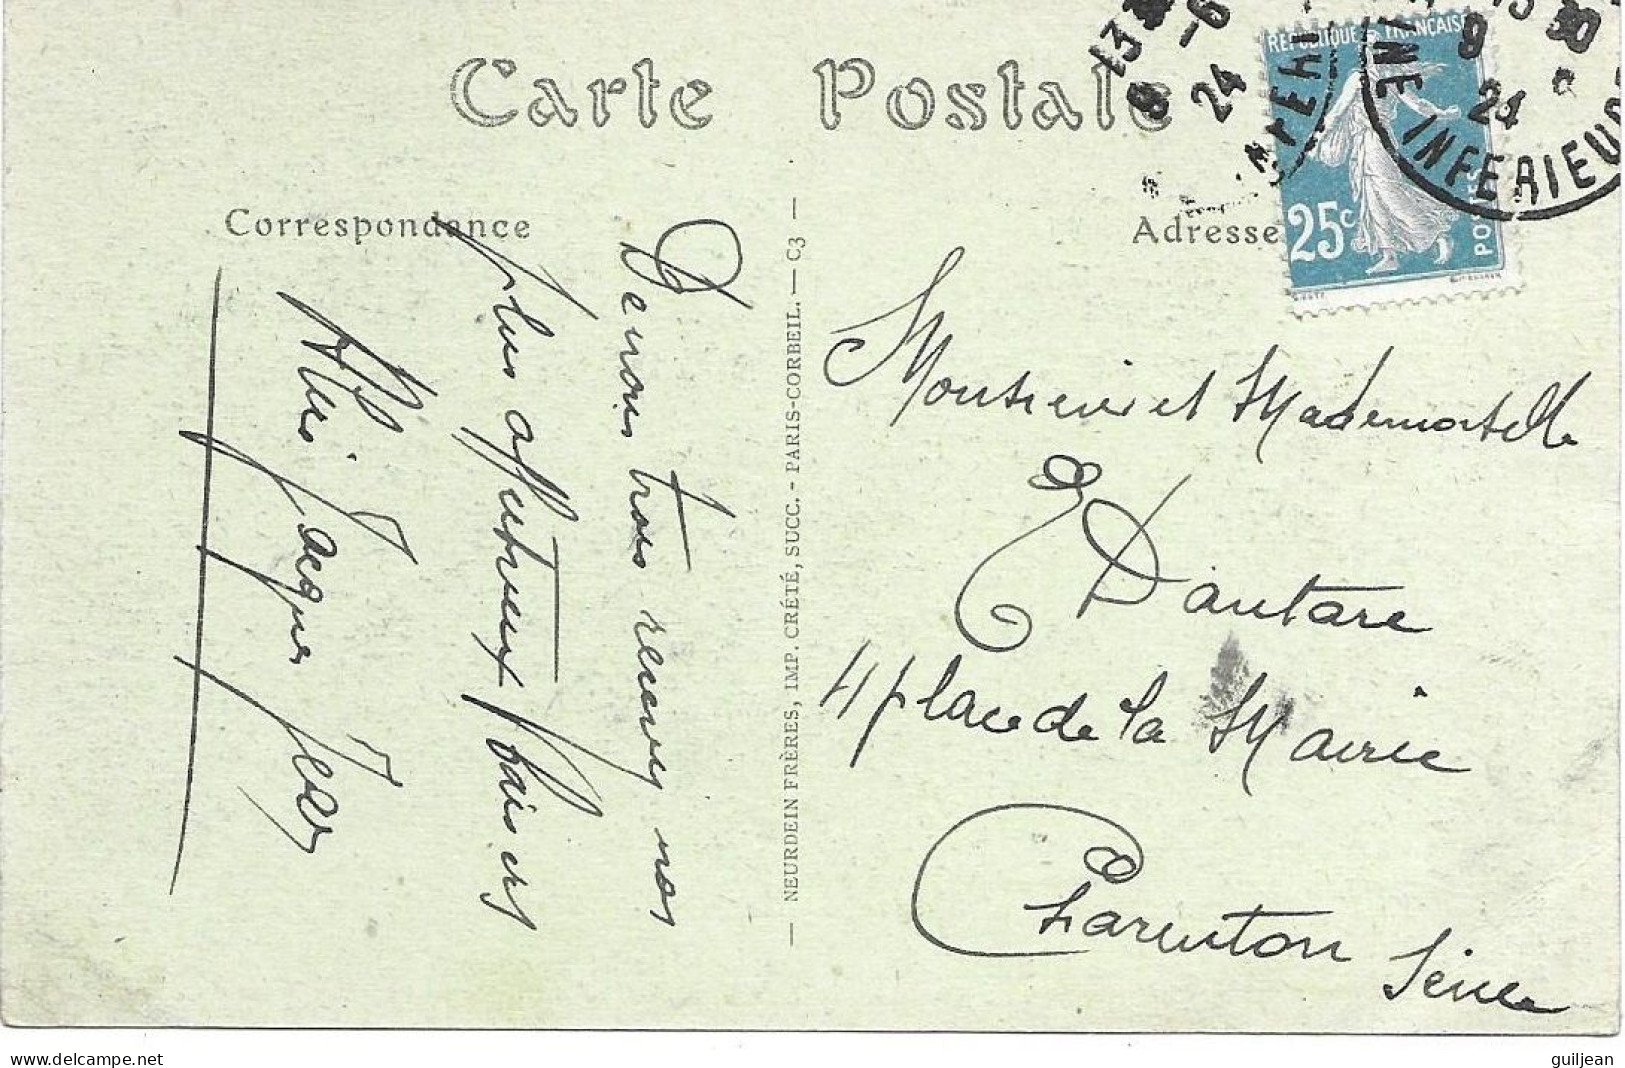 Carte Postale
Correspondance
Adresse
REPUBLIQUE FRANÇAISE
25c
POSTES
INFERIEURE
13
9
24
-6
24
De nous trois recevez nos
plus affectueux baisers
Jacques Jean
— NEURDEIN FRÈRES, IMP. CRÉTÉ, SUCC. - PARIS-CORBEIL. — C3 —
Monsieur et Mademoiselle
Dautare
4 place de la Mairie
Charenton
Seine
www.delcampe.net
guiljean